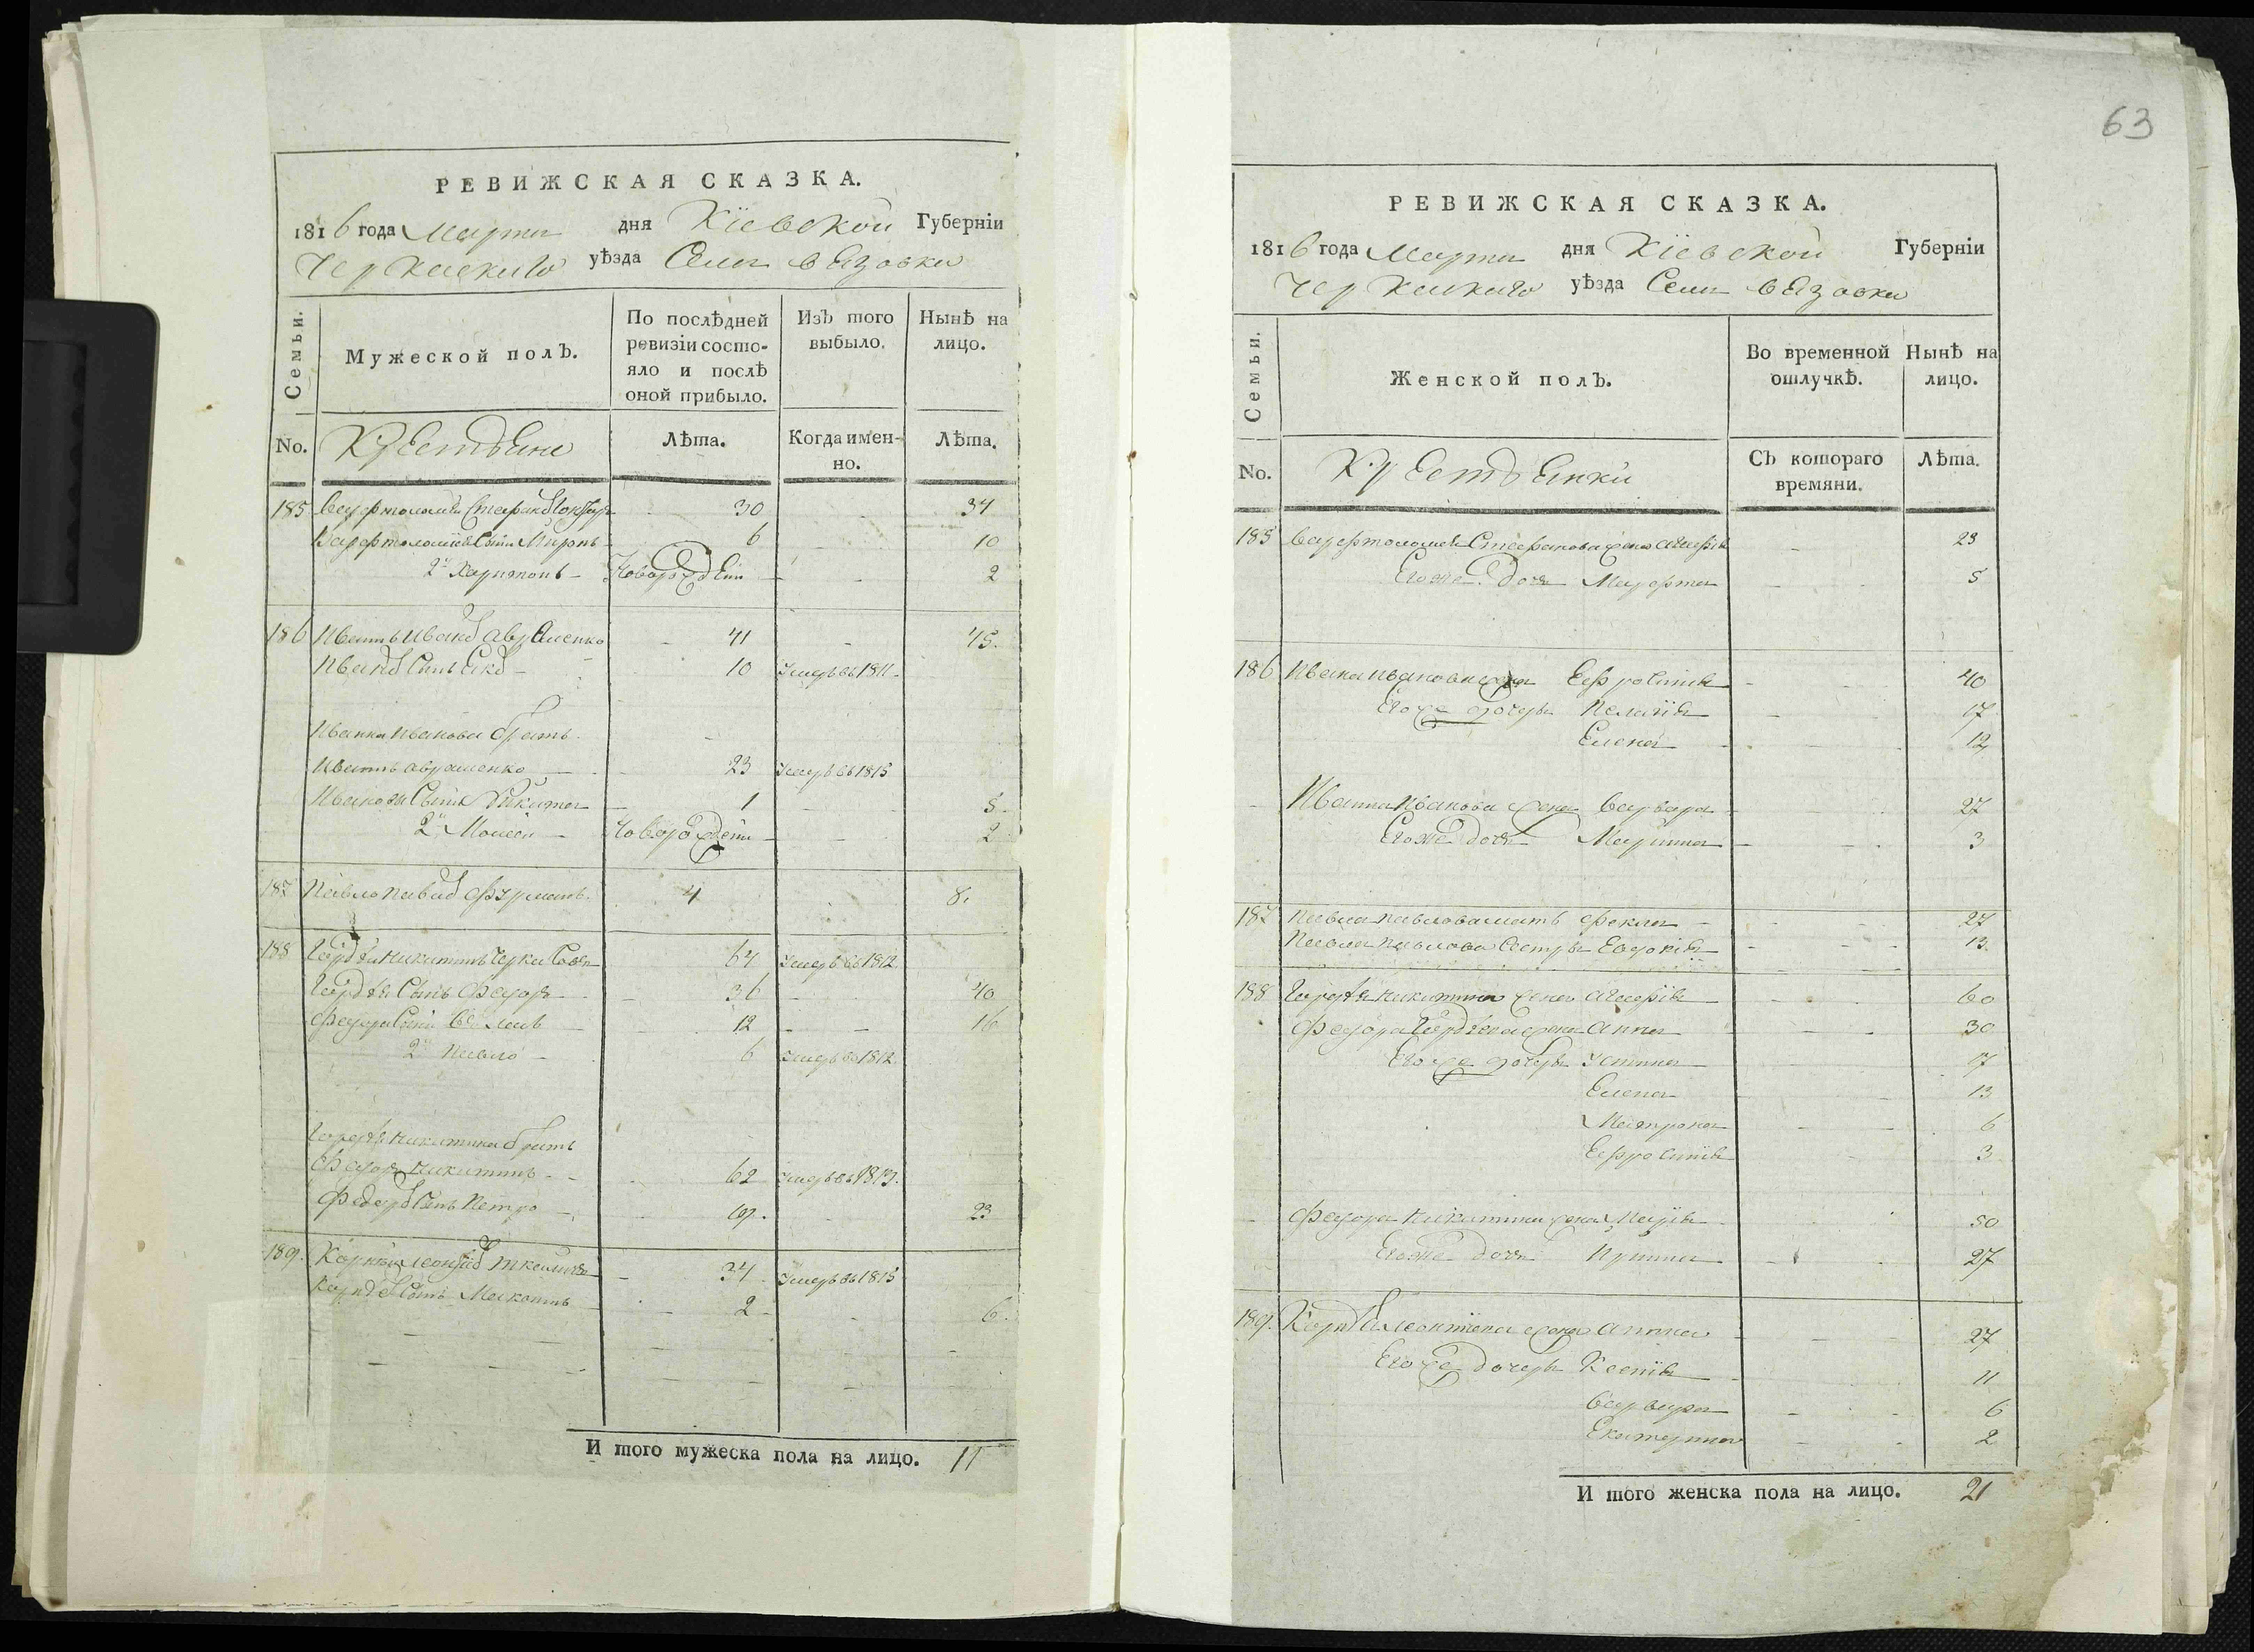 63
РЕВИЖСКАЯ СКАЗКА.
1816 года Марта дня Кіевской Губерніи
Черкаскаго уѣзда Села вязовки
Семьи.
Мужеской полЪ.
По послѣдней ревизіи состояло и послѣ оной прибыло.
ИзЪ того выбыло.
Нынѣ на лицо.
No.
Крестьяне
Лѣта.
Когда именно.
Лѣта.
185 Варфтоломей Стефанов 30 34
Варфтоломея Сынъ Миронъ 6 10
2й Харитонъ Новорожден 2
186 Иванъ Иванов Авраменко 41 45.
Иванов Сынъ 10 Умеръ въ 1811.
Ивана Иванова братъ
Иванъ Авраменко 23 Умеръ въ 1815
Иванов Сынъ Никита 1 5.
2й Моисей Новорожден 2
187 Павло Павлов Фурманъ. 4 8.
188 Гордѣй Никитинъ 64 Умеръ въ 1812.
Гордѣя Сынъ Федоръ 36 40
Федора Сынъ 12 16
2й Павло 6 Умеръ въ 1812.
Гордѣя Никитина братъ
Федоръ Никитинъ 62 Умеръ въ 1813.
Федоров Сынъ Петро 19. 23
189. Корнѣй Леонтіев 34 Умеръ въ 1815
Корнѣев Сынъ 2 6.
И того мужеска пола на лицо. 11
РЕВИЖСКАЯ СКАЗКА.
1816 года Марта дня Кіевской Губерніи
Черкаскаго уѣзда Села вязовки
Семьи.
Женской полЪ.
Во временной отлучкѣ.
Нынѣ на лицо.
No.
Крестьянки
СЪ котораго времяни.
Лѣта.
185 Варфтоломея Стефанова жена Агафія 23
Его же дочь Марфта 5
186 Ивана Иванова жена Ефросинія 40
Его же дочеры Пелагія 17
Елена 12
Ивана Иванова жена Варвара 27
Его же дочь Марина 3
187 Павла Павлова мать Фекла 27
Павла Павлова Сестра Евдокія 13
188 Гордѣя Никитина жена Агафія 60
Федора Гордѣева жена Анна 30
Его же дочеры Устина 17
Елена 13
Матрона 6
Ефросинія 3
Федора Никитина жена Марія 50
Его же дочь Ирина 27
189. Корнѣя Леонтіева жена Анна 27
Его же дочеры Ксенія 11
Варвара 6
Екатерина 2
И того женска пола на лицо. 21